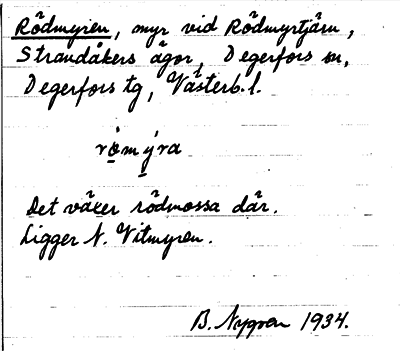 Rödmyren, myr vid Rödmyrtjärn,
Strandåkers ägor, Degerfors sn,
Degerfors tg, Västerb. l.
rö̀mýra
Det växer rödmossa där.
Ligger N. Vitmyren.
B. Nygren 1934.